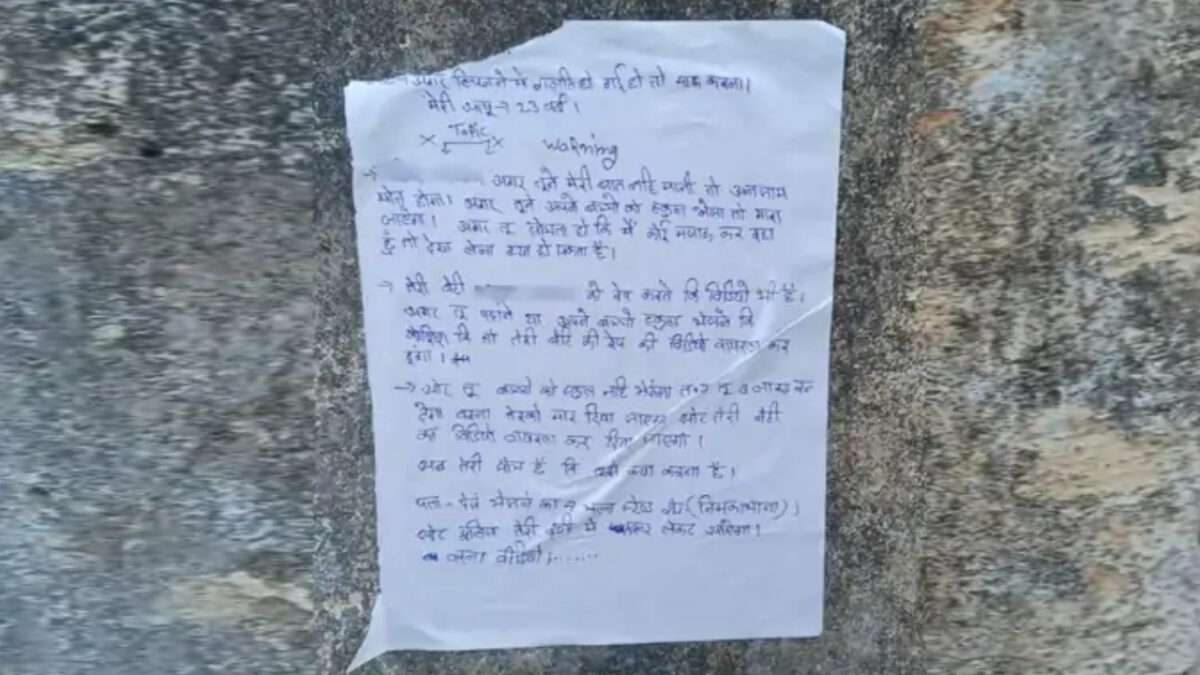 अगर लिखने मे गलति हो गई हो तो माफ करना।
मेरी आयू → 23 वर्ष।
Topic
Warning
→ अगर तूने मेरी बात नहि मानी तो अन्जाम
मोत होगा। अगर तूने अपने बच्चो को स्कुल भेजा तो मारा
जाएगा। अगर तू सोचता हो कि मैं कोई मजाक कर रहा
हुँ तो देख लेना क्या हो सकता है।
→ तेरी बेटी की रेप करते कि विडियो भी है।
अगर तू पढाने या अपने बच्चो स्कुल भेजने कि
कोशिश कि तो तेरी बेटि की रेप की विडियो वायरल कर
दुंगा।
→ और तू बच्चो को स्कुल नहि भेजेगा तू लाख
देगा वरना तेरको मार दिया जाएगा और तेरी बेटी
का विडियो वायरल कर दिया जाएगा।
अब तेरी सोच हैं कि क्या करना है।
पता - भेजने का (निमकाथाना)।
ओर तेरी में लेकर आएगा।
वरना वीडियो।......